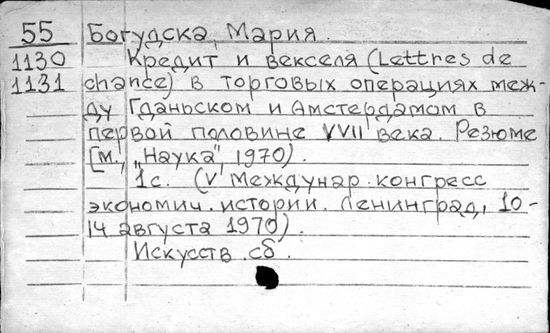 55 Богудска, Мария.
1130 Кредит и векселя (Lettres de
1131 chance) в торговых операциях меж-
ду Гданьском и Амстердамом в
первой половине VVII века. Резюме
[м., „Наука" 1970).
1с. (V Междунар. конгресс
экономич. истории. Ленинград, 10-
14 августа 1970).
Искусств. сб.